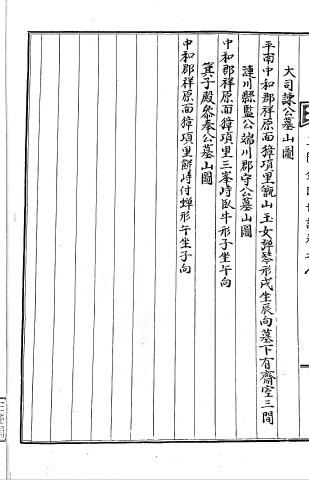 大司諫公墓山圖
平南中和郡祥原面獐項里甑山玉女彈琴形戌坐辰向墓下有齋室三間
漣川縣監公端川郡守公墓山圖
中和郡祥原面獐項里三峯峙臥牛形子坐午向
箕子殿叅奉公墓山圖
中和郡祥原面獐項里觧峙付蟬形午坐子向